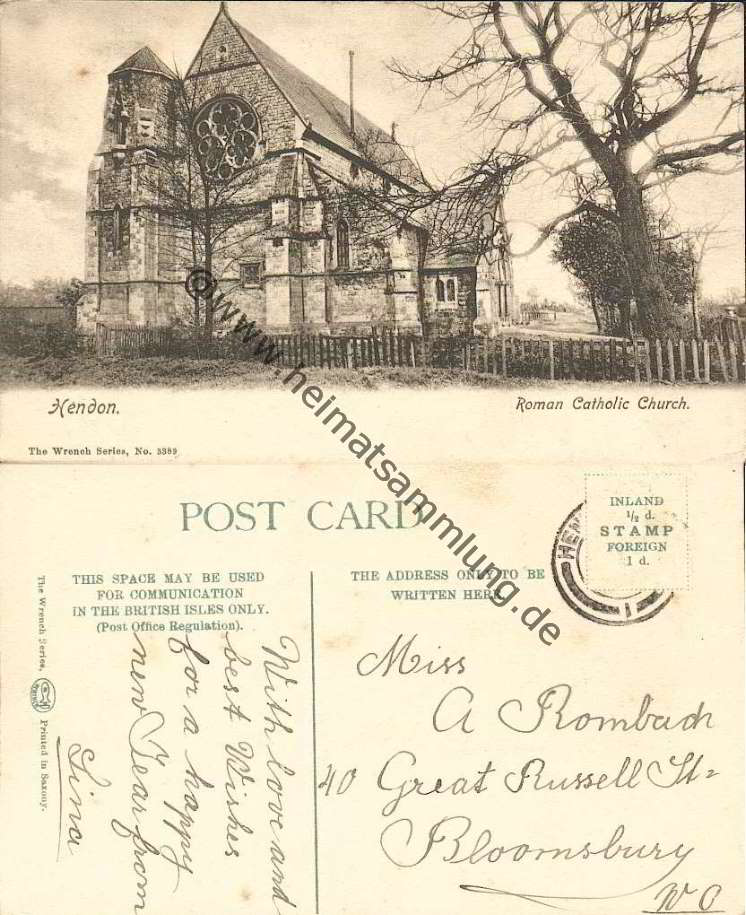 Hendon.
Roman Catholic Church.
The Wrench Series, No. 5389
© www.heimatsammlung.de
POST CARD
INLAND
½ d.
STAMP
FOREIGN
1 d.
HEN
THIS SPACE MAY BE USED
FOR COMMUNICATION
IN THE BRITISH ISLES ONLY.
(Post Office Regulation).
THE ADDRESS ONLY TO BE
WRITTEN HERE.
The Wrench Series, Printed in Saxony.
With love and
best Wishes
for a happy
new Year from
Lina
Miss
A Rombach
40 Great Russell St=
Bloomsbury
W C